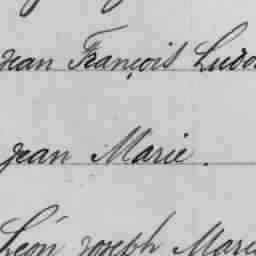 Jean François Ludo
Jean Marie.
Léon Joseph Marie